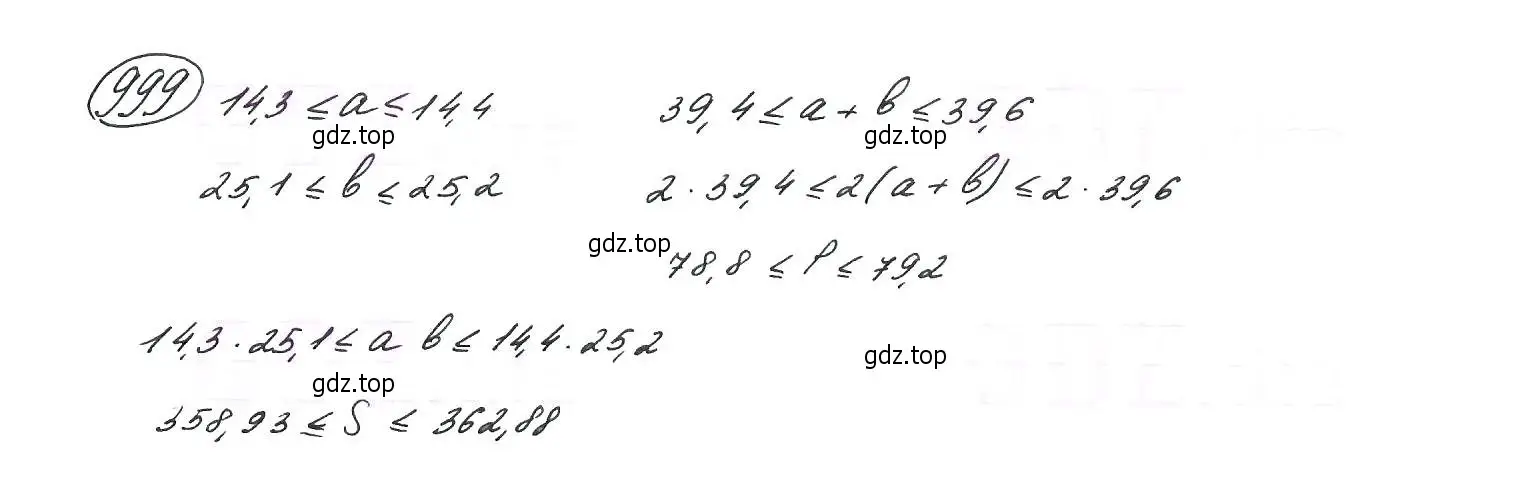 999 14,3 ≤ a ≤ 14,4
gdz.top
25,1 ≤ b ≤ 25,2
39,4 ≤ a + b ≤ 39,6
gdz.top
2 · 39,4 ≤ 2(a + b) ≤ 2 · 39,6
gdz.top
78,8 ≤ P ≤ 79,2
14,3 · 25,1 ≤ a b ≤ 14,4 · 25,2
gdz.top
gdz.top
358,93 ≤ S ≤ 362,88